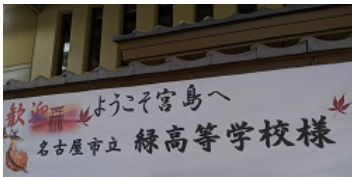 歓迎 ようこそ宮島へ
名古屋市立 緑高等学校様